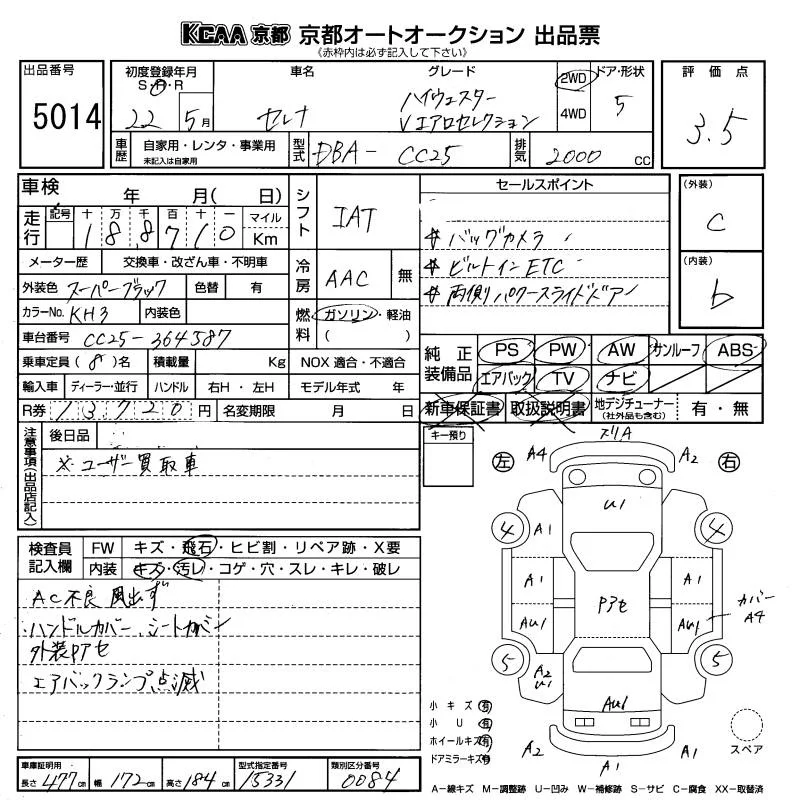 KCAA 京都 京都オートオークション 出品票
《赤枠内は必ず記入して下さい》
出品番号 5014
初度登録年月 S・H・R 22 5月
車名 セレナ
グレード ハイウェスター Vエアロセレクション
2WD 4WD
ドア・形状 5
評価点 3.5
車歴 自家用・レンタ・事業用 未記入は自家用
型式 DBA- CC25
排気 2000 CC
車検 年 月( 日)
走行 記号 十 万 千 百 十 一 マイル Km
188710
シフト IAT
メーター歴 交換車・改ざん車・不明車
冷房 AAC 無
外装色 スーパーブラック 色替 有
カラーNo. KH3 内装色
燃料 ガソリン・軽油 ( )
車台番号 CC25-364587
乗車定員 (8)名 積載量 Kg NOX 適合・不適合
輸入車 ディーラー・並行 ハンドル 右H・左H モデル年式 年
R券 13720円 名変期限 月 日
セールスポイント
# バックカメラ
# ビルトインETC
# 両側パワースライドドアー
(外装) C
(内装) b
純正装備品 PS PW AW サンルーフ ABS
エアバック TV ナビ
新車保証書 取扱説明書 地デジチューナー (社外品も含む) 有・無
注意事項(出品店記入) 後日品
※ユーザー買取車
キー預り
検査員記入欄 FW キズ・飛石・ヒビ割・リペア跡・X要
内装 キズ・汚レ・コゲ・穴・スレ・キレ・破レ
AC不良 風出ず
・ハンドルカバー、シートカバー
外装Pアセ
エアバックランプ点滅
左 A4 ズリA A2 右
U1
4 A1 4
A1 A1
Pアセ
AU1 AU1 カバーA4
5 A2 U1 5
AU1
A2 A1 A1
小キズ 有
小U 有
ホイールキズ 有
ドアミラーキズ 有
スペア
A-線キズ M-調整跡 U-凹み W-補修跡 S-サビ C-腐食 XX-取替済
車庫証明用 長さ 477cm 幅 172cm 高さ 184cm
型式指定番号 15331
類別区分番号 0084